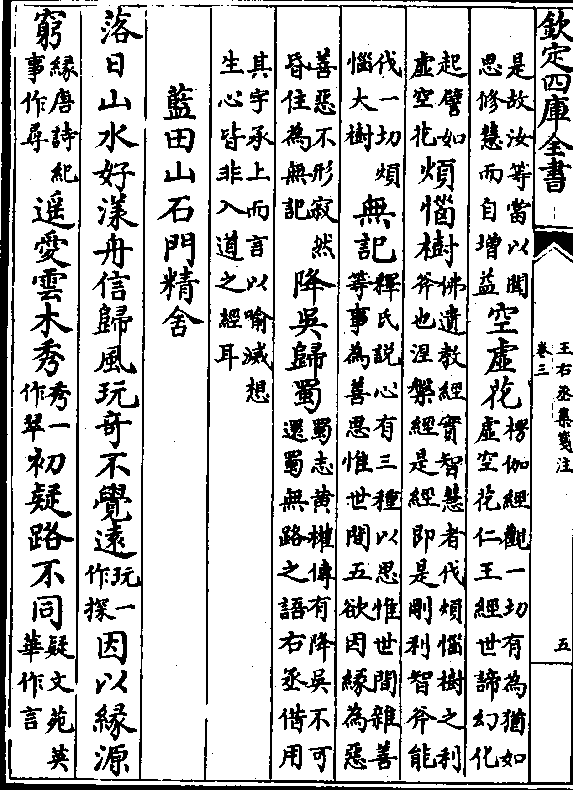 欽定四庫全書
王右丞集箋注
卷三
五
是故汝等當以聞思修慧而自增益空虛花楞伽經觀一切有為猶如虛空花仁王經世諦幻化
起譬如虛空花煩惱樹佛遺教經實智慧者伐煩惱樹之利斧也涅槃經是經即是剛利智斧能
伐一切煩惱大樹無記釋氏說心有三種以思惟世間雜善等事為善思惟世間五欲因緣為惡
善惡不形寂然昏住為無記降吳歸蜀蜀志黃權傳有降吳不可還蜀無路之語右丞借用
其字承上而言以喻滅想生心皆非入道之經耳
藍田山石門精舍
落日山水好漾舟信歸風玩奇不覺遠玩一作探因以緣源
窮緣唐詩紀事作尋遥愛雲木秀秀一作翠初疑路不同疑文苑英華作言